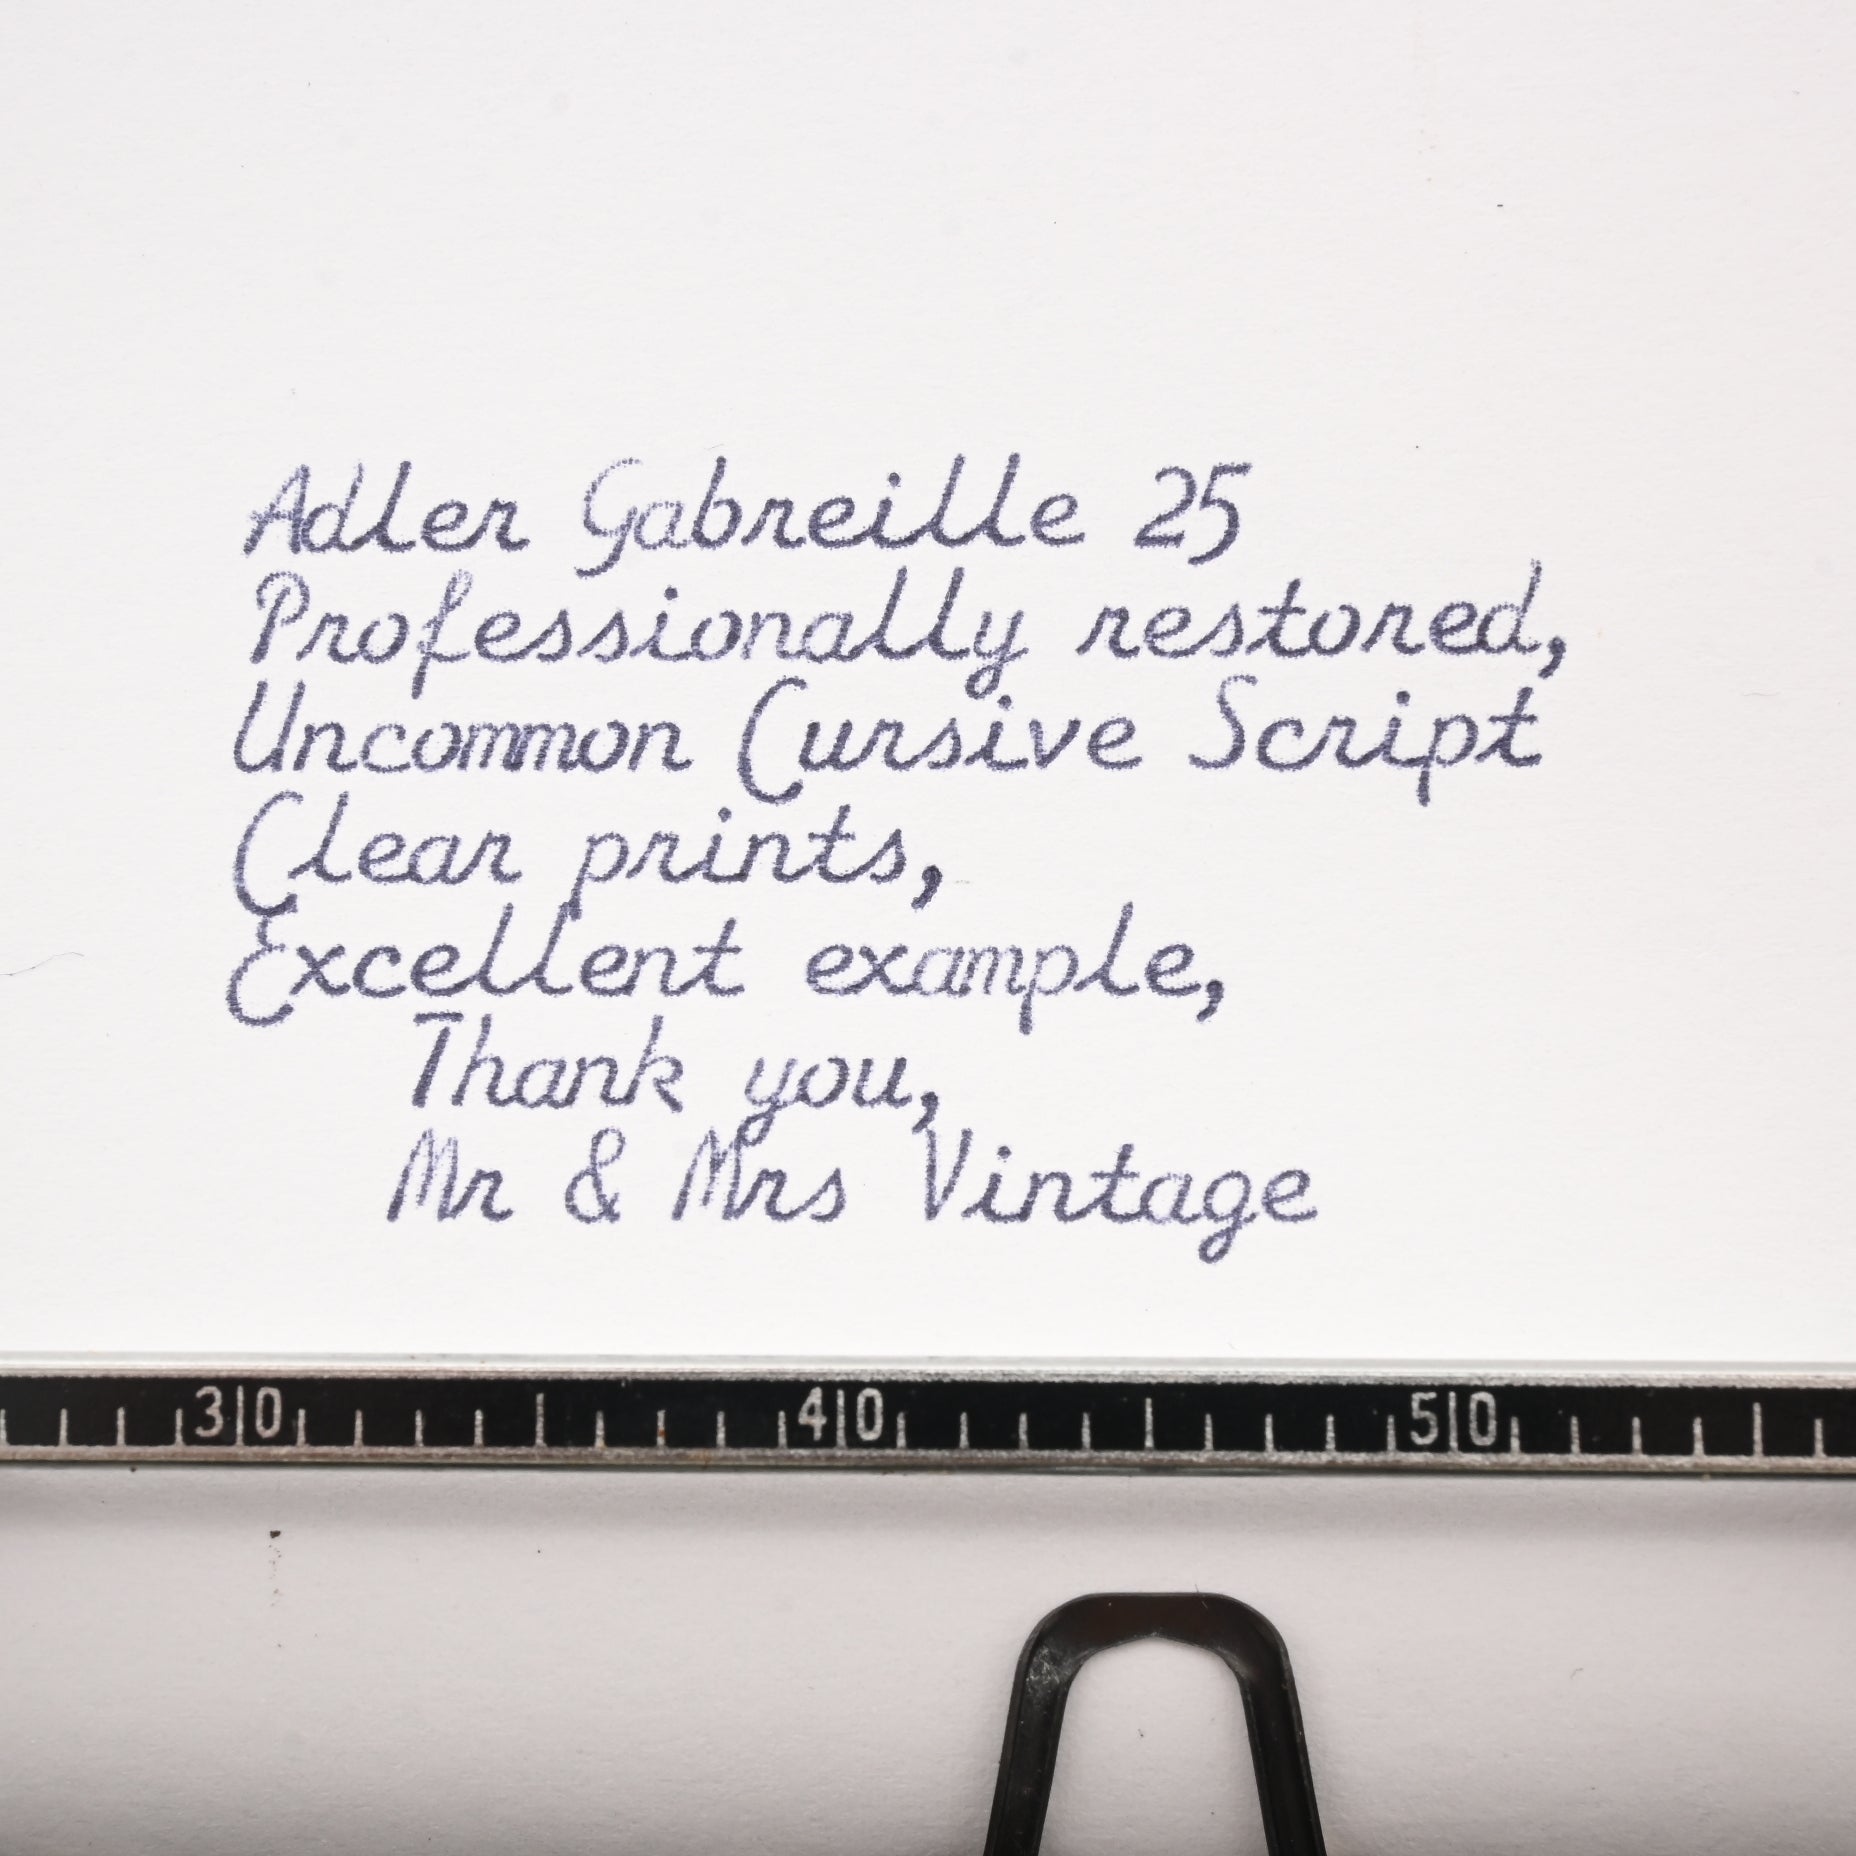 Adler Gabreille 25
Professionally restored,
Uncommon Cursive Script
Clear prints,
Excellent example,
Thank you,
Mr & Mrs Vintage
30 40 50